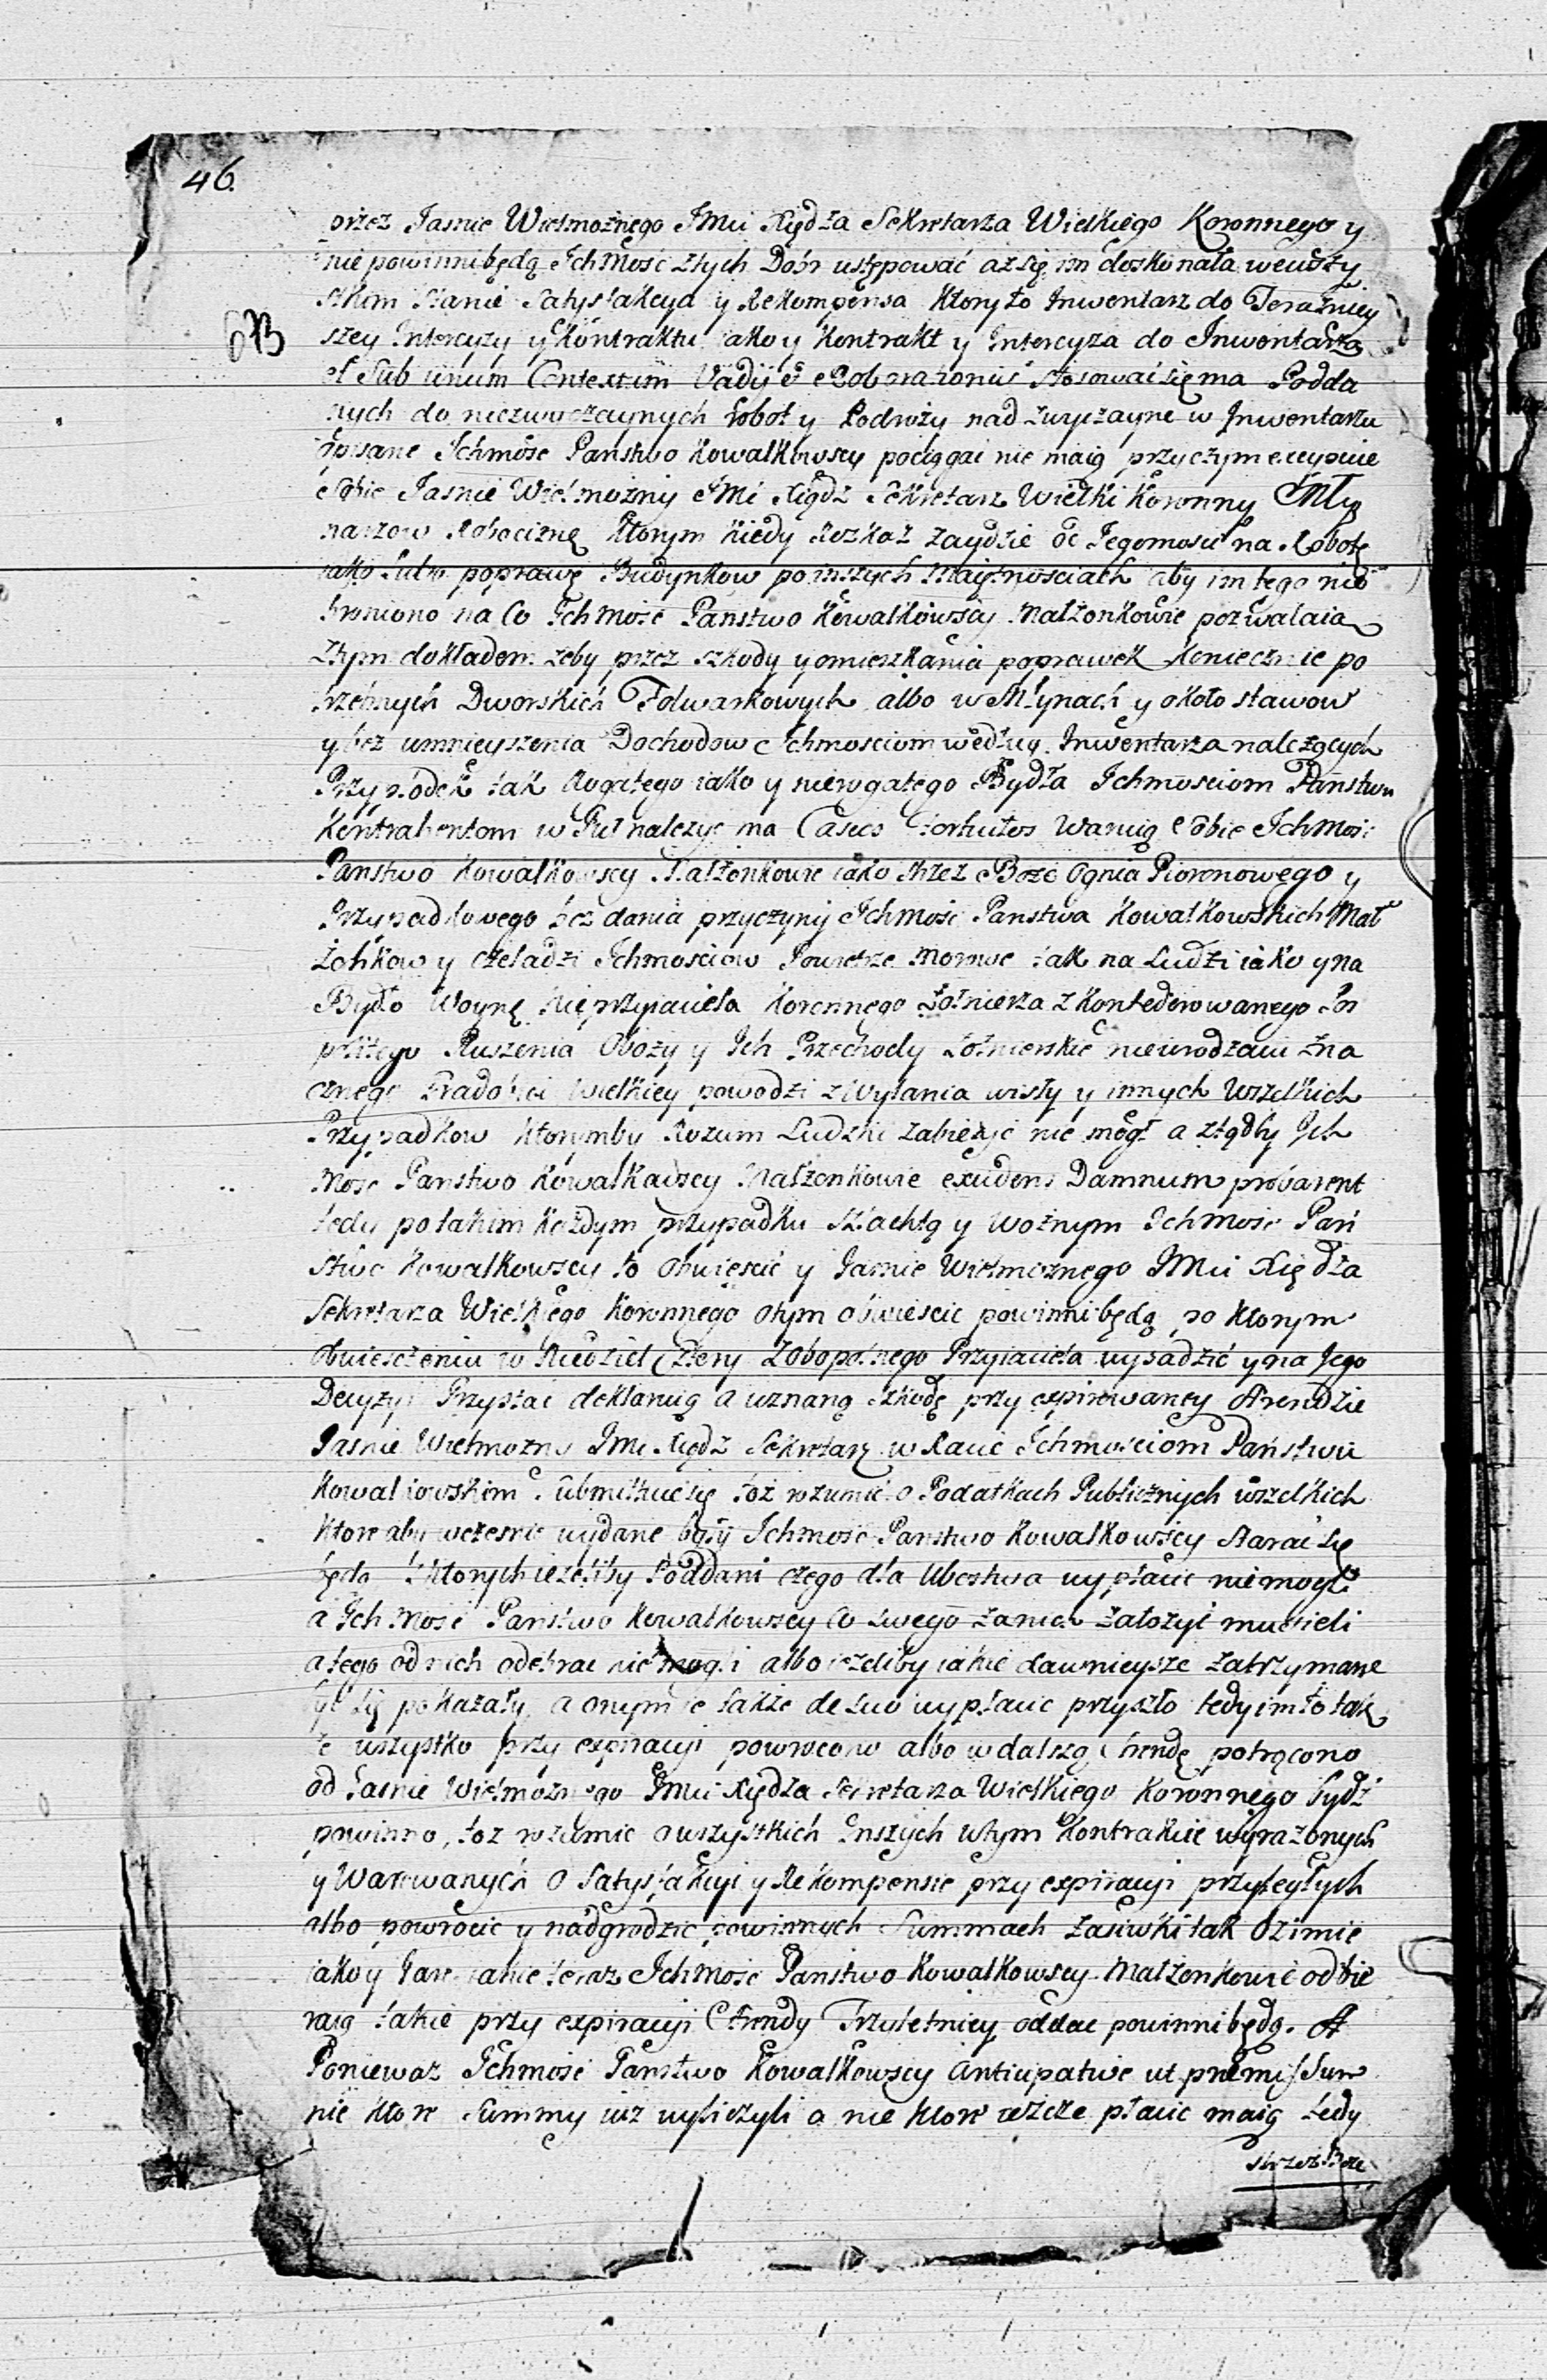 46.
przez Jasnie Wielmożnego JMci Xiędza Sekretarza Wielkiego Koronnego y
nie powinni będą Ichmość z tych Dobr ustępować aż się im doskonała we wszy
stkim stanie Satysfakcya y Rekompensa Ktory to Inwentarz do Teraźniey
szey Intercyzy y Kontraktu iako y Kontrakt y Intercyza do Inwentarza
et Sub unum Contextum Vadij et Roborationis stosować się ma Podda
nych do niezwyczaynych Robot y Podroży nad zwyczayne w Inwentarzu
opisane Ichmość Państwo Kowalkowscy pociągać nie maią przyczym excypuie
Sobie Jasnie Wielmożny JMć Xiądz Sekretarz Wielki Koronny Mły
narzow Robociznę Ktorym Kiedy Rozkaz zaydzie od Jegomości na Robotę
iako lubo poprawę Budynkow po inszych Maiętnosciach aby im tego nie
broniono na Co Ichmość Państwo Kowalkowscy Małżonkowie pozwalaią
z tym dokładem żeby przez szkody y omieszkania poprawek Koniecznie po
trzebnych Dworskich Folwarkowych albo w Młynach y około stawow
y bez umnieyszenia Dochodow Ichmosciom według Inwentarza należących
Przypłodek tak Rogatego iako y nierogatego Bydła Ichmosciom Państwu
Kontrahentom w Puł należyć ma Casus Fortuitos Waruią Sobie Ichmość
Państwo Kowalkowscy Małżonkowie iako strzez Boże Ognia Pioronowego y
Przypadkowego bez dania przyczyny Ichmość Państwa Kowalkowskich Mał
żonkow y czeladzi Ichmosciow Powietrze Morowe tak na Ludzi iako y na
Bydło Woynę Nieprzyiaciela Koronnego Żołnierza Zkonfederowanego Pos
politego Ruszenia Obozy y Ich Przechody Żołnierskie nieurodzaiu zna
cznego Gradobici Wielkiey powodzi z Wylania wisły y innych Wszelkich
Przypadkow Ktorymby Rozum Ludzki zabieżyć nie mogł a ztądby Ich
Mość Państwo Kowalkowscy Małżonkowie evidens Damnum probarent
tedy po takim Każdym przypadku Szlachtą y Woźnym Ichmość Pań
stwo Kowalkowscy to obwieścić y Jasnie Wielmożnego JMci Xiędza
Sekretarza Wielkiego Koronnego o tym obwieścic powinni będą po Ktorym
obwieszczeniu w Niedziel Cztery Zobopolnego Przyiaciela wysadzić y na Jego
Decyzyi Przystać deklaruią a uznaną szkodę przy expirowaney Arendzie
Jasnie Wielmożny JMć Xiądz Sekretarz wRacić Ichmościom Państwu
Kowalkowskim submittuie się toż rozumić o Podatkach Publicznych wszelkich
Ktore aby wcześnie wydane były Ichmość Państwo Kowalkowscy starać się
będą Ktorych ieżeliby Poddani czego dla Ubostwa wypłacic nie mogli
a Ichmość Państwo Kowalkowscy Co swego zanich założyć musieli
a tego od nich odebrać nie mogli albo ieżeliby iakie dawnieysze zatrzymane
się pokazały a onym ie także de suo wypłacic przyszło tedy im to tak
że wszystko przy expiracyi powrocono albo w dalszą Arendę potrącono
od Jasnie Wielmożnego JMci Xiędza Sekretarza Wielkiego Koronnego bydź
powinno, toż rozumic o wszystkich Inszych w tym Kontrakcie wyrażonych
y Warowanych o Satysfakcyi y Rekompensie przy expiracyi przybyłych
albo powrocic y nadgrodzic powinnych Summach Zasiewki tak Ozimie
iako y Jare iakie teraz Ichmość Państwo Kowalkowscy Małżonkowie odbie
raią takie przy expiracyi Arendy Trzyletniey oddac powinni będą. A
Ponieważ Ichmość Państwo Kowalkowscy Anticipative ut præmissum
nie ktore Summy iuż wyliczyli a nie ktore ieszcze płacic maią tedy
strzeż Boże